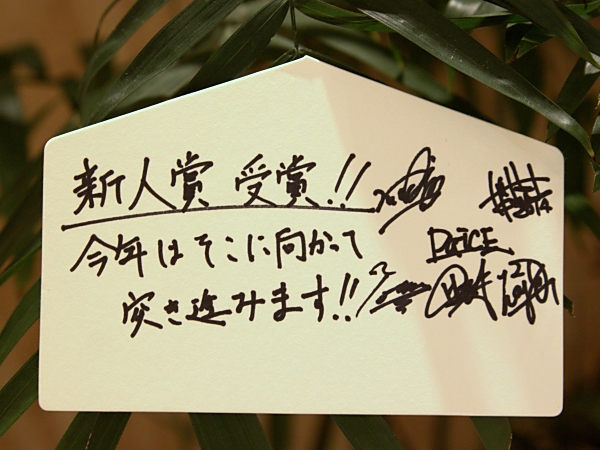 新人賞 受賞!!
今年はそこに向かって
突き進みます!!
DEICE
2014